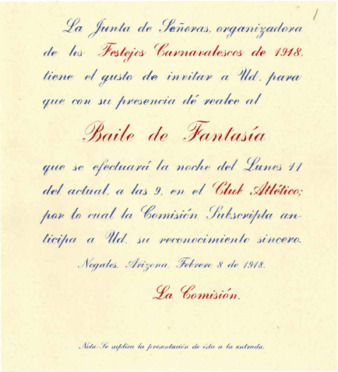 1
La Junta de Señoras, organizadora
de los Festejos Carnavalescos de 1918,
tiene el gusto de invitar a Ud. para
que con su presencia dé realce al
Baile de Fantasía
que se efectuará la noche del Lunes 11
del actual, a las 9, en el Club Atlético;
por lo cual la Comisión Subscripta an-
ticipa a Ud. su reconocimiento sincero.
Nogales, Arizona, Febrero 8 de 1918.
La Comisión.
Nota: Se suplica la presentación de ésta a la entrada.